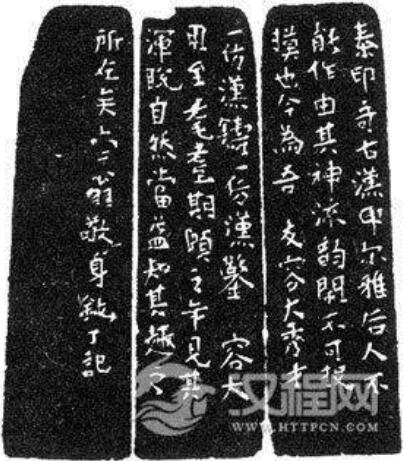 秦印奇古漢印尔雅后人不
能作由其神流韵閑不可捉
摸也今為吾 友容大秀才
一仿漢鑄一仿漢鑿 容大
用至耄耋期頤之年見其
渾脫自然當益知其趣之
所在矣六二翁敬身丁記
汉程网
WWW.HTTPCN.COM